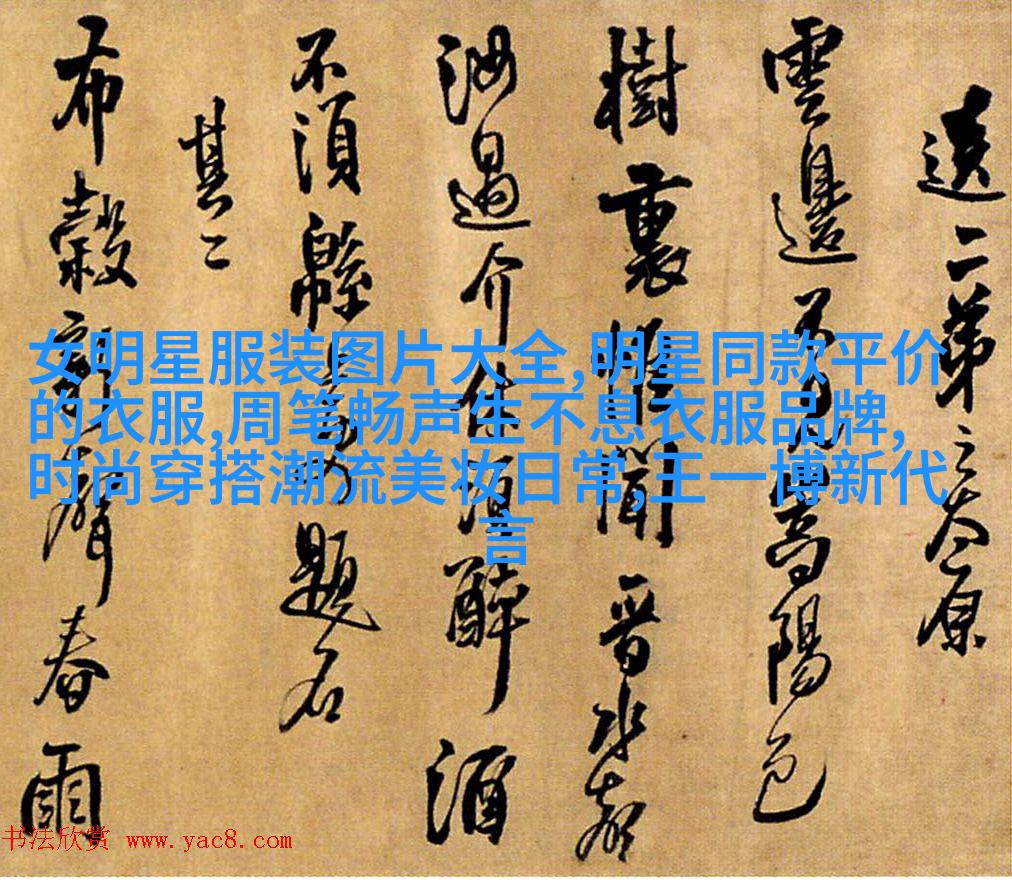 送二第之太原
雲邊高陽邑
樹裏聞晉水
汝過介休須醉酒
不須緜題名
其二
布穀春雨
女明星服装图片大全,明星同款平价
的衣服,周笔畅声生不息衣服品牌,
时尚穿搭潮流美妆日常,王一博新代
言
书法欣赏 www.yac8.com